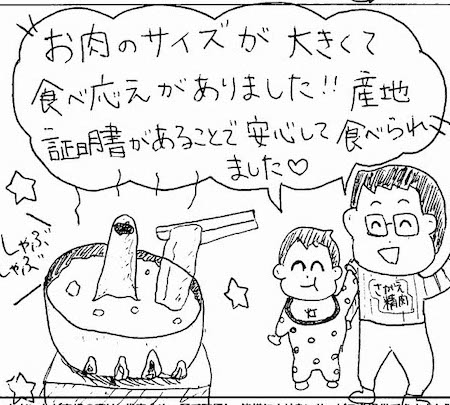 お肉のサイズが 大きくて
食べ応えがありました!! 産地
証明書があることで 安心して 食べられ
ました♡
しゃぶ
しゃぶ
さがえ
精肉